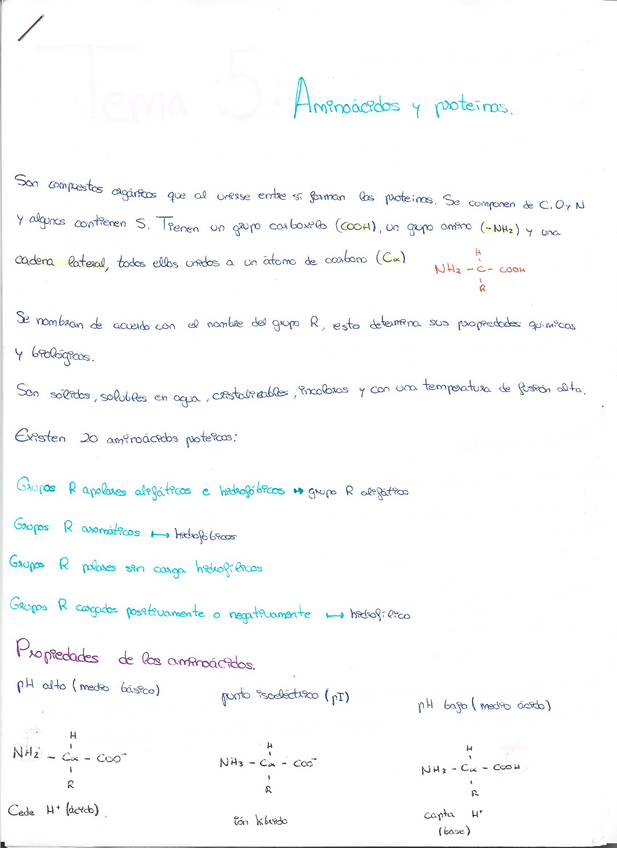 Tema 5:
Aminoácidos y proteinas.
Son compuestos orgánicos que al unirse entre sí forman las proteinas. Se componen de C, O y N
y algunos contienen S. Tienen un grupo carboxilo (COOH), un grupo amino (-NH2) y una
cadena lateral, todos ellos unidos a un átomo de carbono (Cα)
H
NH2 - C - COOH
R
Se nombran de acuerdo con el nombre del grupo R, esto determina sus propiedades químicas
y biológicas.
Son sólidos, solubles en agua, cristalizables, incoloros y con una temperatura de fusión alta.
Existen 20 aminoácidos proteicos:
Grupos R apolares alifáticos e hidrofóbicos ↔ grupo R alifático
Grupos R aromáticos ↦ hidrofóbicos
Grupos R polares sin carga hidrofílicos
Grupos R cargados positivamente o negativamente ↦ hidrofílico
Propiedades de los aminoácidos.
pH alto (medio básico) punto isoeléctrico (pI) pH bajo (medio ácido)
H H H
NH2 - Cα - COO⁻ NH3 - Cα - COO⁻ NH2 - Cα - COOH
R R R
Cede H⁺ (ácido) ión híbrido capta H⁺
(base)